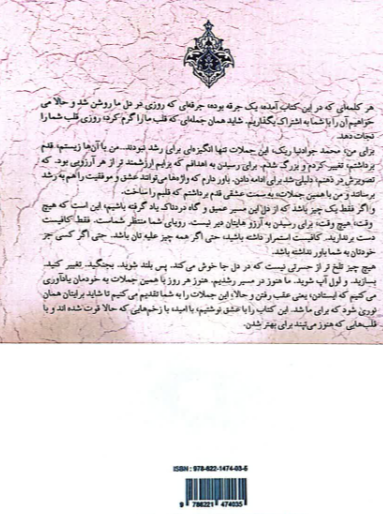 هر کلمه‌ای که در این کتاب آمده، یک جرقه بوده؛ جرقه‌ای که روزی در دل ما روشن شد و حالا می
خواهیم آن را با شما به اشتراک بگذاریم. شاید همان جمله‌ای که قلب ما را گرم کرد، روزی قلب شما را
نجات دهد.
برای من، محمد جوادنیا ریک، این جملات تنها انگیزه‌ای برای رشد نبودند. من با آن‌ها زیستم، قدم
برداشتم، تغییر کردم و بزرگ شدم. برای رسیدن به اهدافم که برایم ارزشمند تر از هر آرزویی بود، که
تصویرش در ذهنم، دلیلی شد برای ادامه دادن. باور دارم که واژه‌ها می‌توانند عشق و موفقیت را هم به رشد
برسانند و من با همین جملات، به سمت عشقی قدم برداشتم که قلبم را ساخت.
و اگر فقط یک چیز باشد که از دل این مسیر عمیق و گاه دردناک یاد گرفته باشم، این است که هیچ
وقت، هیچ وقت، برای رسیدن به آرزو هایتان دیر نیست. رویای شما منتظر شماست. فقط کافیست
دست برندارید. کافیست استمرار داشته باشید، حتی اگر همه چیز علیه تان باشد. حتی اگر کسی جز
خودتان به شما باور نداشته باشد.
هیچ چیز تلخ تر از حسرتی نیست که در دل جا خوش می‌کند. پس بلند شوید. بجنگید. تغییر کنید.
بسازید. و اول آپ شوید. ما هنوز در مسیر رشدیم. هنوز هر روز با همین جملات به خودمان یادآوری
می کنیم که ایستادن، یعنی عقب رفتن و حالا، این جملات را به شما تقدیم می کنیم تا شاید برایتان همان
نوری شود که برای ما شد. این کتاب را با عشق نوشتیم، با امید، با زخم‌هایی که حالا قوت شده اند و با
قلب‌هایی که هنوز می‌تپند برای بهتر شدن.
ISBN : 978-622-1474-03-5
9 786221 474035